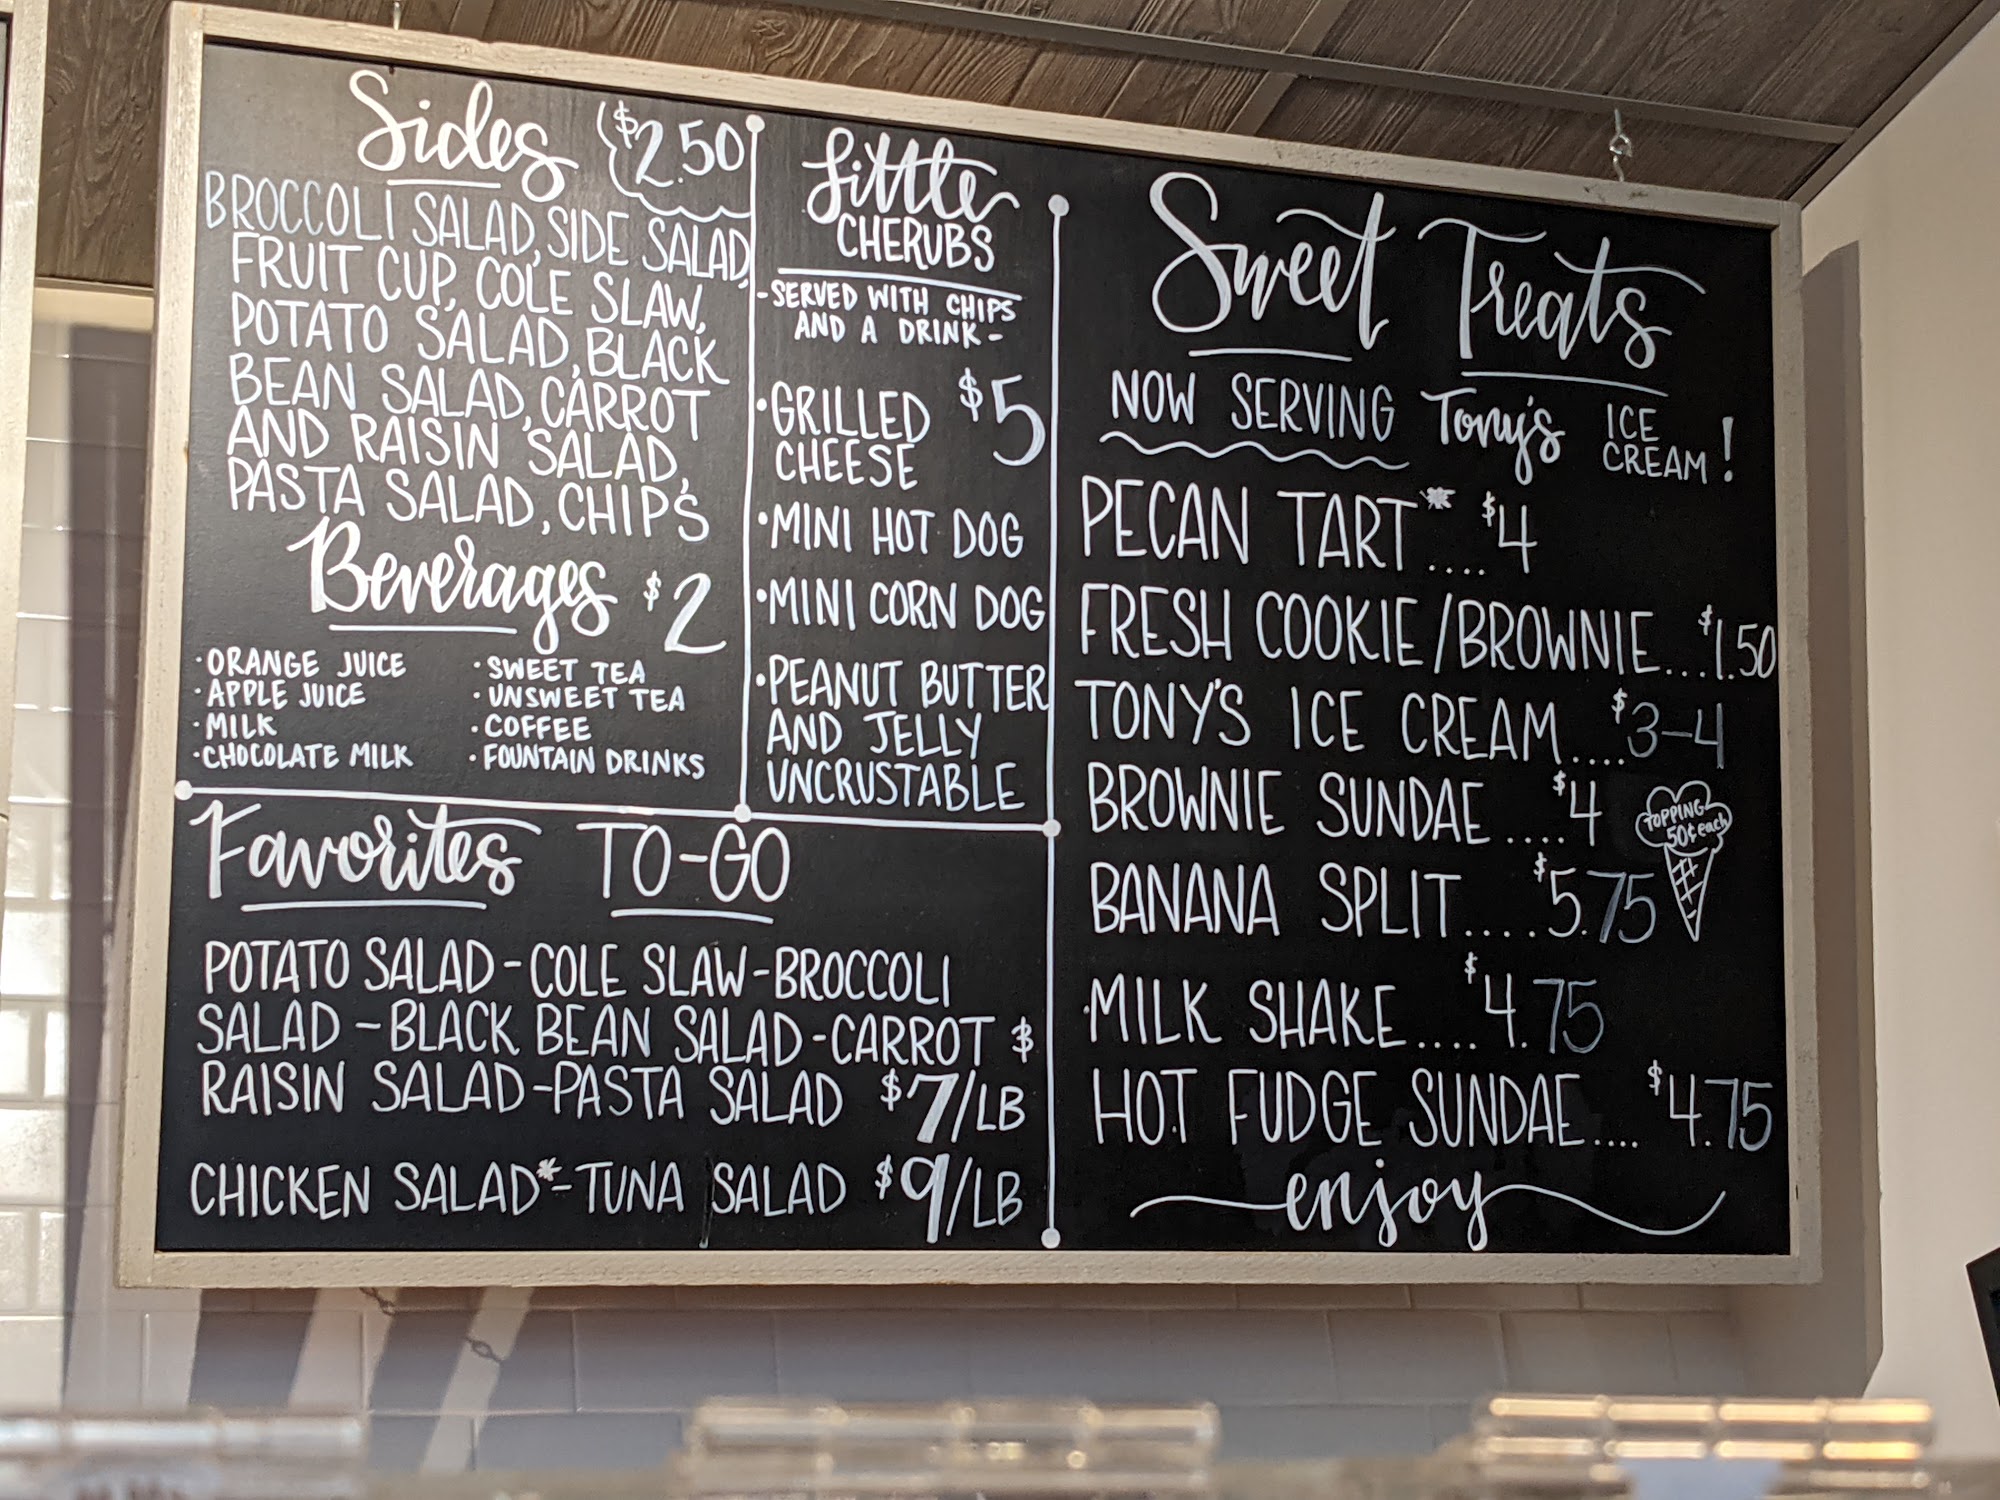 Sides $2.50
BROCCOLI SALAD, SIDE SALAD,
FRUIT CUP, COLE SLAW,
POTATO SALAD, BLACK
BEAN SALAD, CARROT
AND RAISIN SALAD,
PASTA SALAD, CHIPS
Beverages $2
• ORANGE JUICE
• APPLE JUICE
• MILK
• CHOCOLATE MILK
• SWEET TEA
• UNSWEET TEA
• COFFEE
• FOUNTAIN DRINKS
Little
CHERUBS
- SERVED WITH CHIPS
AND A DRINK -
• GRILLED $5
CHEESE
• MINI HOT DOG
• MINI CORN DOG
• PEANUT BUTTER
AND JELLY
UNCRUSTABLE
Favorites TO-GO
POTATO SALAD - COLE SLAW - BROCCOLI
SALAD - BLACK BEAN SALAD - CARROT $
RAISIN SALAD - PASTA SALAD $7/LB
CHICKEN SALAD* - TUNA SALAD $9/LB
Sweet Treats
NOW SERVING Tony's ICE
CREAM!
PECAN TART* .... $4
FRESH COOKIE/BROWNIE... $1.50
TONY'S ICE CREAM.... $3-4
BROWNIE SUNDAE .... $4
TOPPING
50¢ each
BANANA SPLIT.... $5.75
MILK SHAKE.... $4.75
HOT FUDGE SUNDAE.... $4.75
enjoy